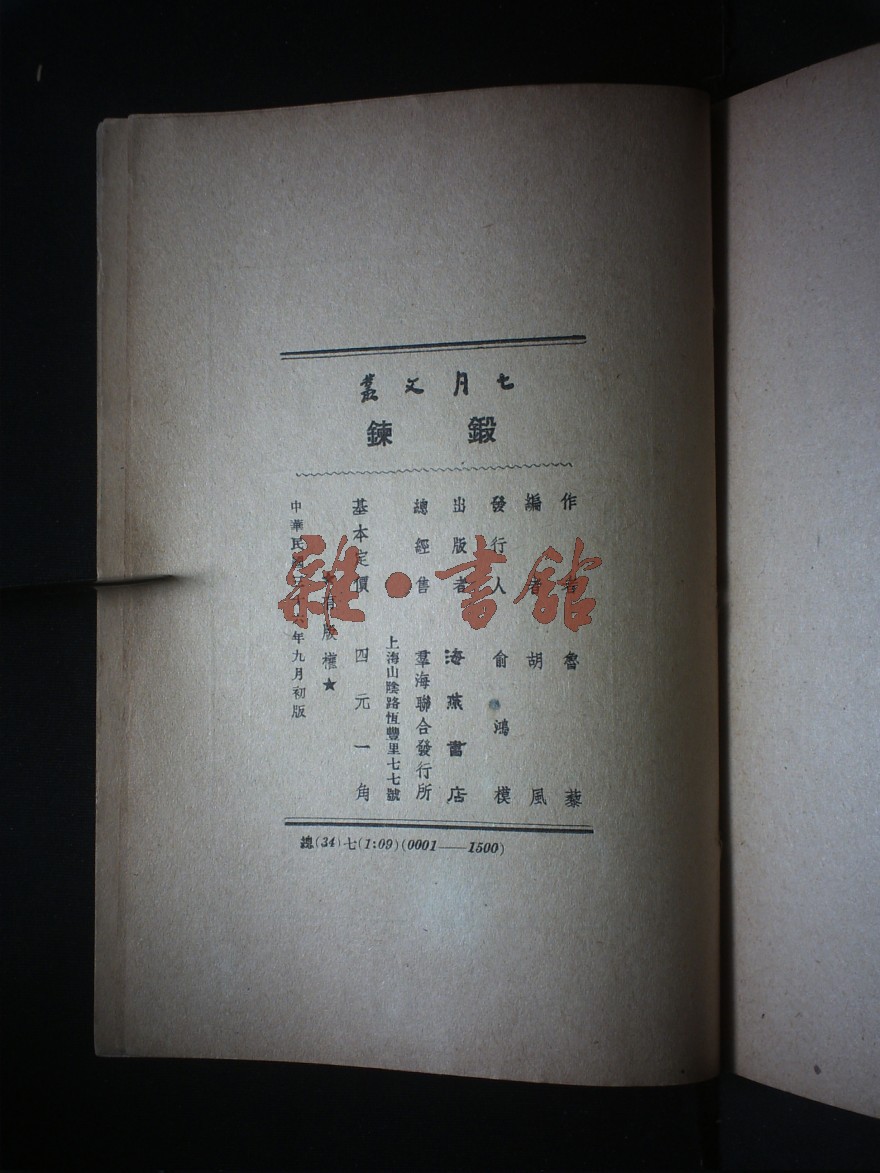 七月文叢
鍛鍊
作者 魯藜
編者 胡風
發行人 俞鴻模
出版者 海燕書店
總經售 羣海聯合發行所
上海山陰路恆豐里七七號
基本定價 四元一角
有版權★
中華民國三十六年九月初版
總(34)七(1:09)(0001——1500)
雜·書館